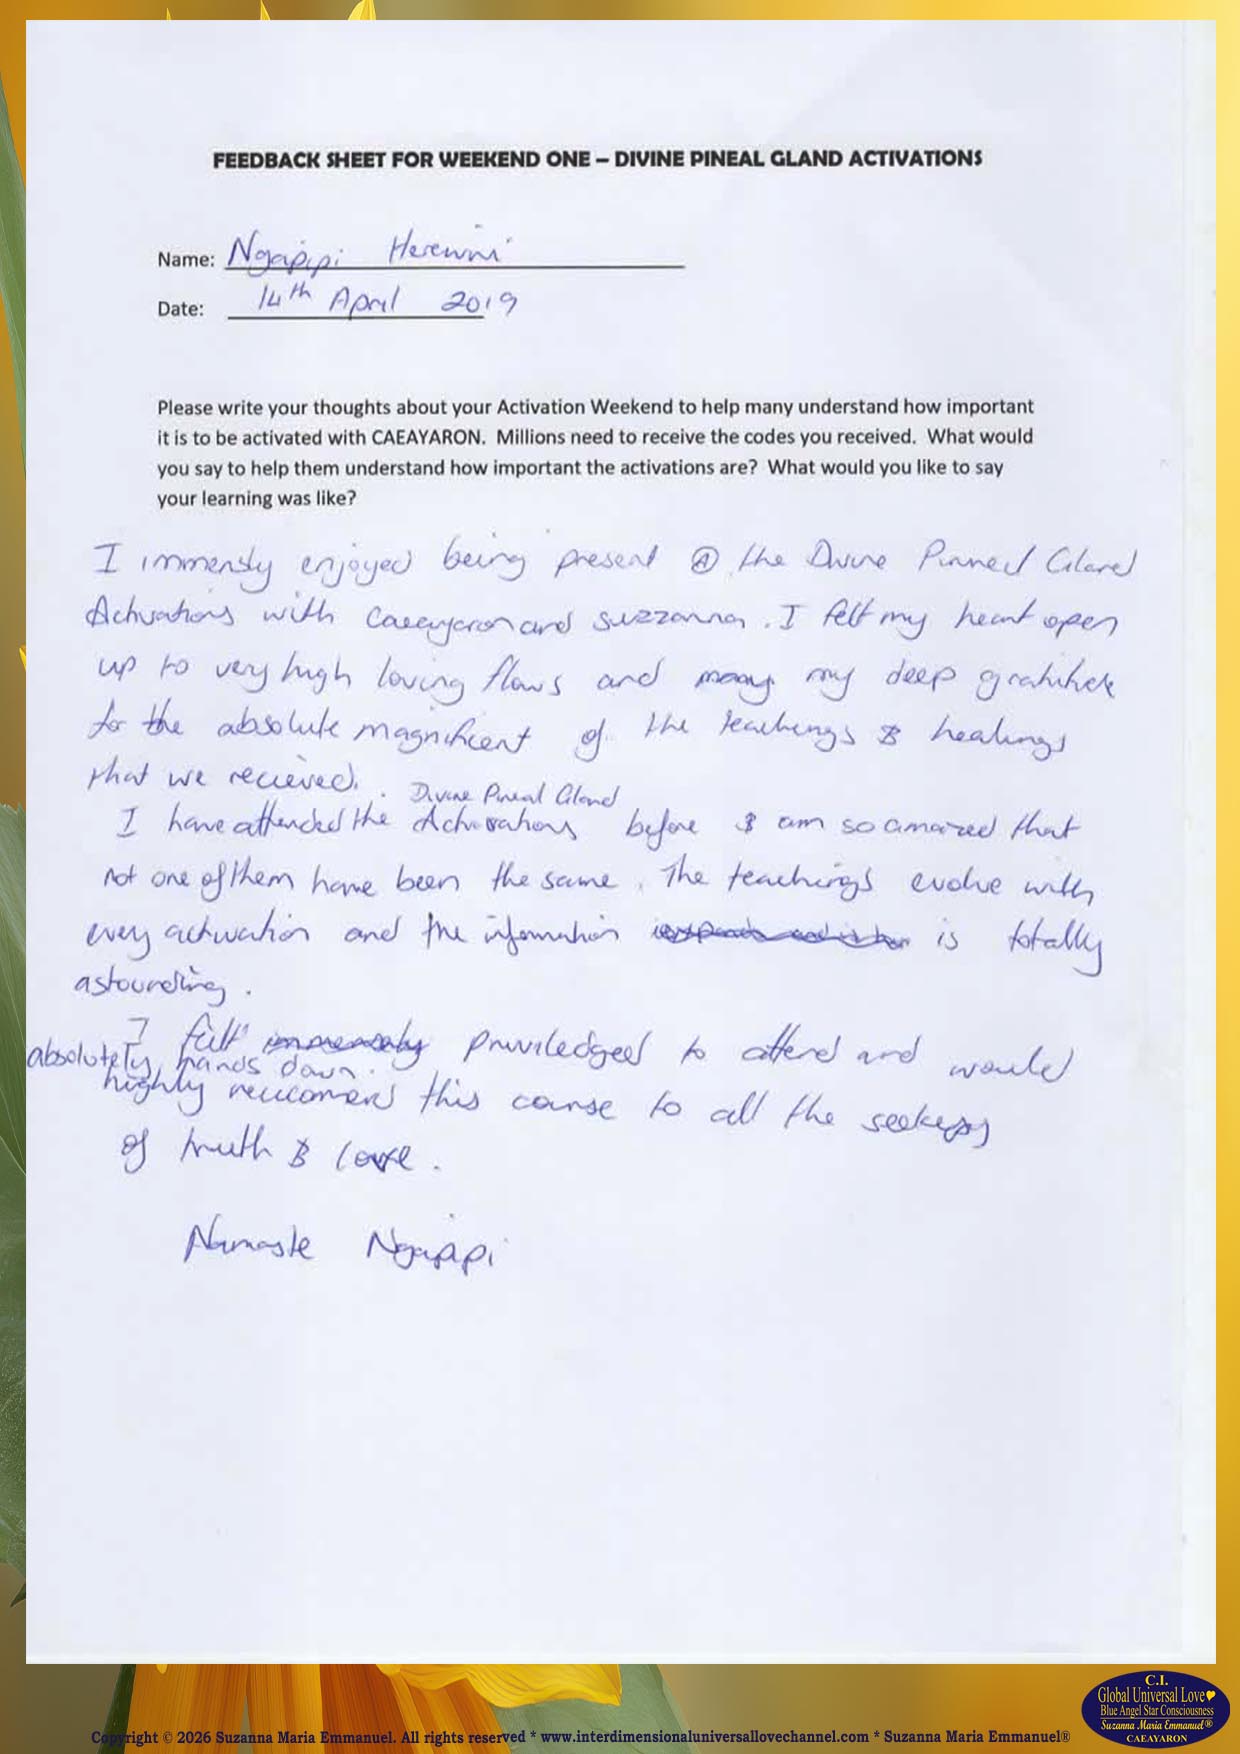 FEEDBACK SHEET FOR WEEKEND ONE – DIVINE PINEAL GLAND ACTIVATIONS
Name: Ngapipi Herewini
Date: 14th April 2019
Please write your thoughts about your Activation Weekend to help many understand how important
it is to be activated with CAEAYARON. Millions need to receive the codes you received. What would
you say to help them understand how important the activations are? What would you like to say
your learning was like?
I immensly enjoyed being present @ the Divine Pinneal Gland
Activations with Caeayaron and suzzanna. I felt my heart open
up to very high loving flows and my deep gratitude
for the absolute magnificent of the teachings & healings
that we recieved.
Divine Pineal Gland
I have attended the Activations before & am so amazed that
not one of them have been the same. The teachings evolve with
every activation and the information is totally
astounding.
I felt immensely priviledged to attend and would
absolutely hands down.
highly reccomend this course to all the seekers
of truth & love.
Namaste Ngapipi
C.I.
Global Universal Love
Blue Angel Star Consciousness
Suzanna Maria Emmanuel®
CAEAYARON
Copyright © 2026 Suzanna Maria Emmanuel. All rights reserved * www.interdimensionaluniversallovechannel.com * Suzanna Maria Emmanuel®